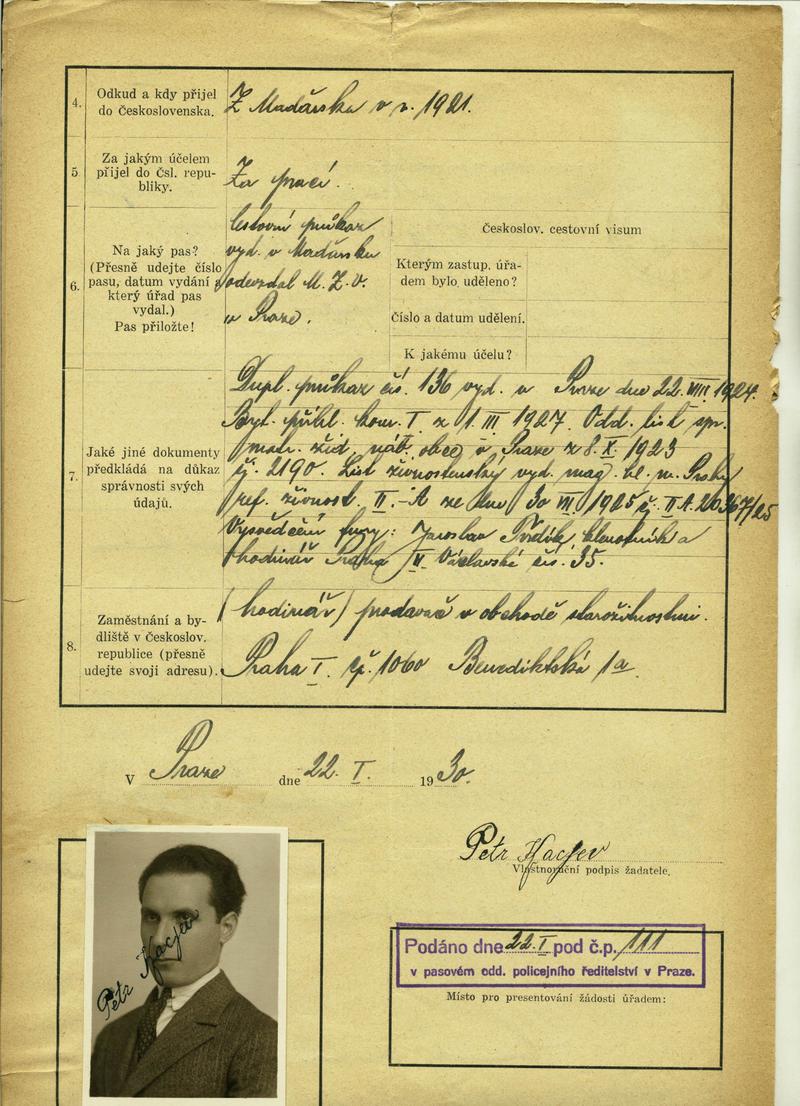 4. Odkud a kdy přijel
do Československa.
Z Maďarska v r. 1921.
5. Za jakým účelem
přijel do Čsl. repu-
bliky.
Za prací.
6. Na jaký pas?
(Přesně udejte číslo
pasu, datum vydání a
který úřad pas
vydal.)
Pas přiložte!
Cestovní průkaz
vyd. v Maďarsku
odevzdal M. Z. V.
v Praze.
Českoslov. cestovní visum
Kterým zastup. úřa-
dem bylo uděleno?
Číslo a datum udělení.
K jakému účelu?
7. Jaké jiné dokumenty
předkládá na důkaz
správnosti svých
údajů.
Dupl. průkaz čís. 136 vyd. v Praze dne 22. VIII. 1924.
Byt. přihl. kom. I z 1. III 1927. Odd. list spr.
matr. žid. náb. obce v Praze z 8. X. 1923
čj. 2190. List živnostenský vyd. mag. hl. m. Prahy
ref. živnost. II.-A ze dne 30 VII 1925 čj. II A. 20367/25
Vysvědčení firmy: Jaroslav klenotník a
hodinář Praha II Václavská čís. 35.
8. Zaměstnání a by-
dliště v Českoslov.
republice (přesně
udejte svoji adresu).
(hodinář) prodavač v obchodě starožitnostmi.
Praha I. čp. 1060 Benediktská 1a.
V Praze dne 22. I. 1930.
Petr Hacjev
Vlastnoruční podpis žadatele.
Petr Hacjev
Podáno dne 22. I pod č.p. 111
v pasovém odd. policejního ředitelství v Praze.
Místo pro presentování žádosti úřadem: